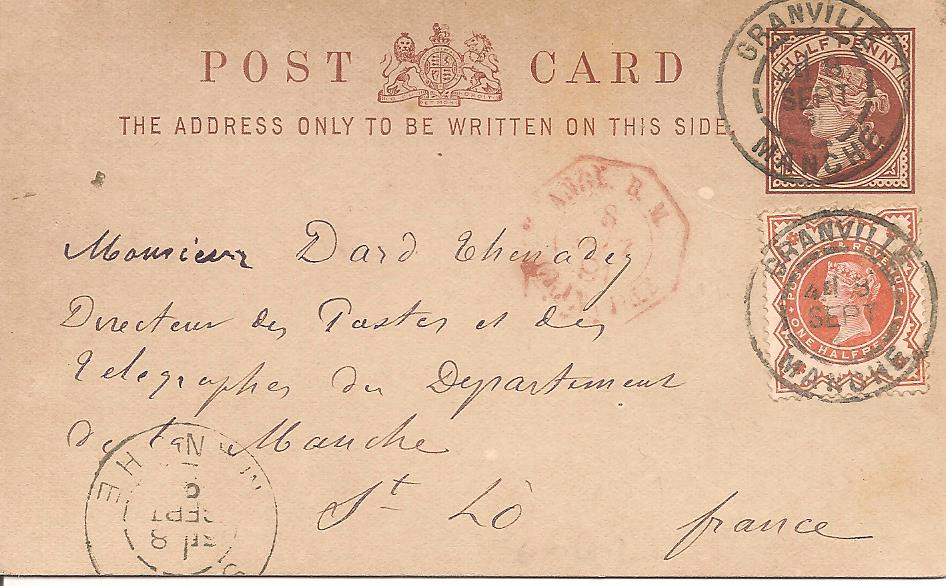 POST CARD
THE ADDRESS ONLY TO BE WRITTEN ON THIS SIDE.
HALF PENNY
GRANVILLE
8
SEPT
MANCHE
Monsieur Dard
Directeur des Postes et des
Telegraphes du Departement
de la Manche
St Lô
france
POSTAGE REVENUE
ONE HALFPENNY
GRANVILLE
8
SEPT
MANCHE
B. M.
8
SEPT